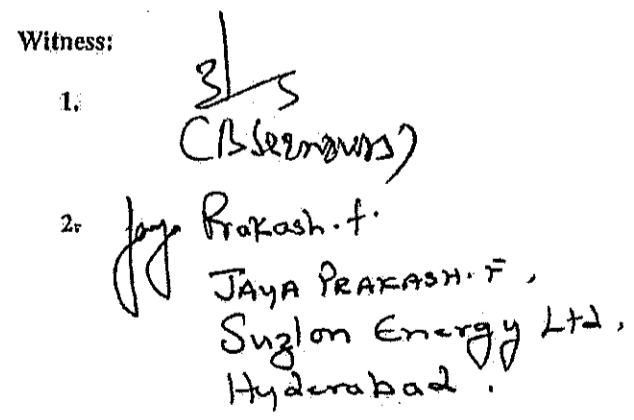 Witness:
1.
(B
2. Jaya Prakash.f.
JAYA PRAKASH.F,
Suzlon Energy Ltd,
Hyderabad.